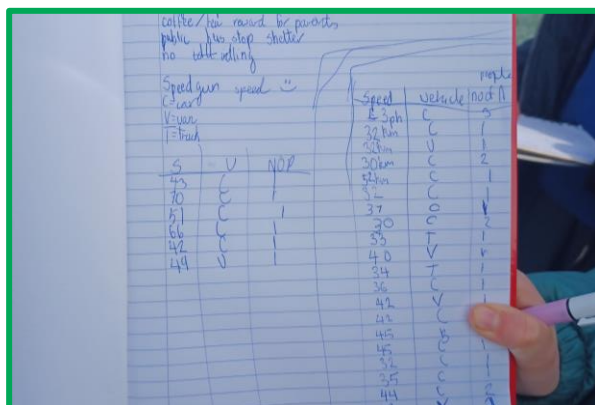 coffee/ reward for parents
public bus stop shelter
no selling
Speed gun speed
C=car
V=van
T=Truck
S V NOP
43 C 1
70 C 1
51 C 1
66 C 1
42 C 1
49 V 1
people
Speed Vehicle no of
C
32km C 1
32km V 1
30km C 2
52km C 1
32 C 1
37 C
30 C 2
33 T 1
40 V
34 T 1
36 C 1
42 V 1
43 C
45 B
45 C
32 C 1
35 C
44 C 2
V